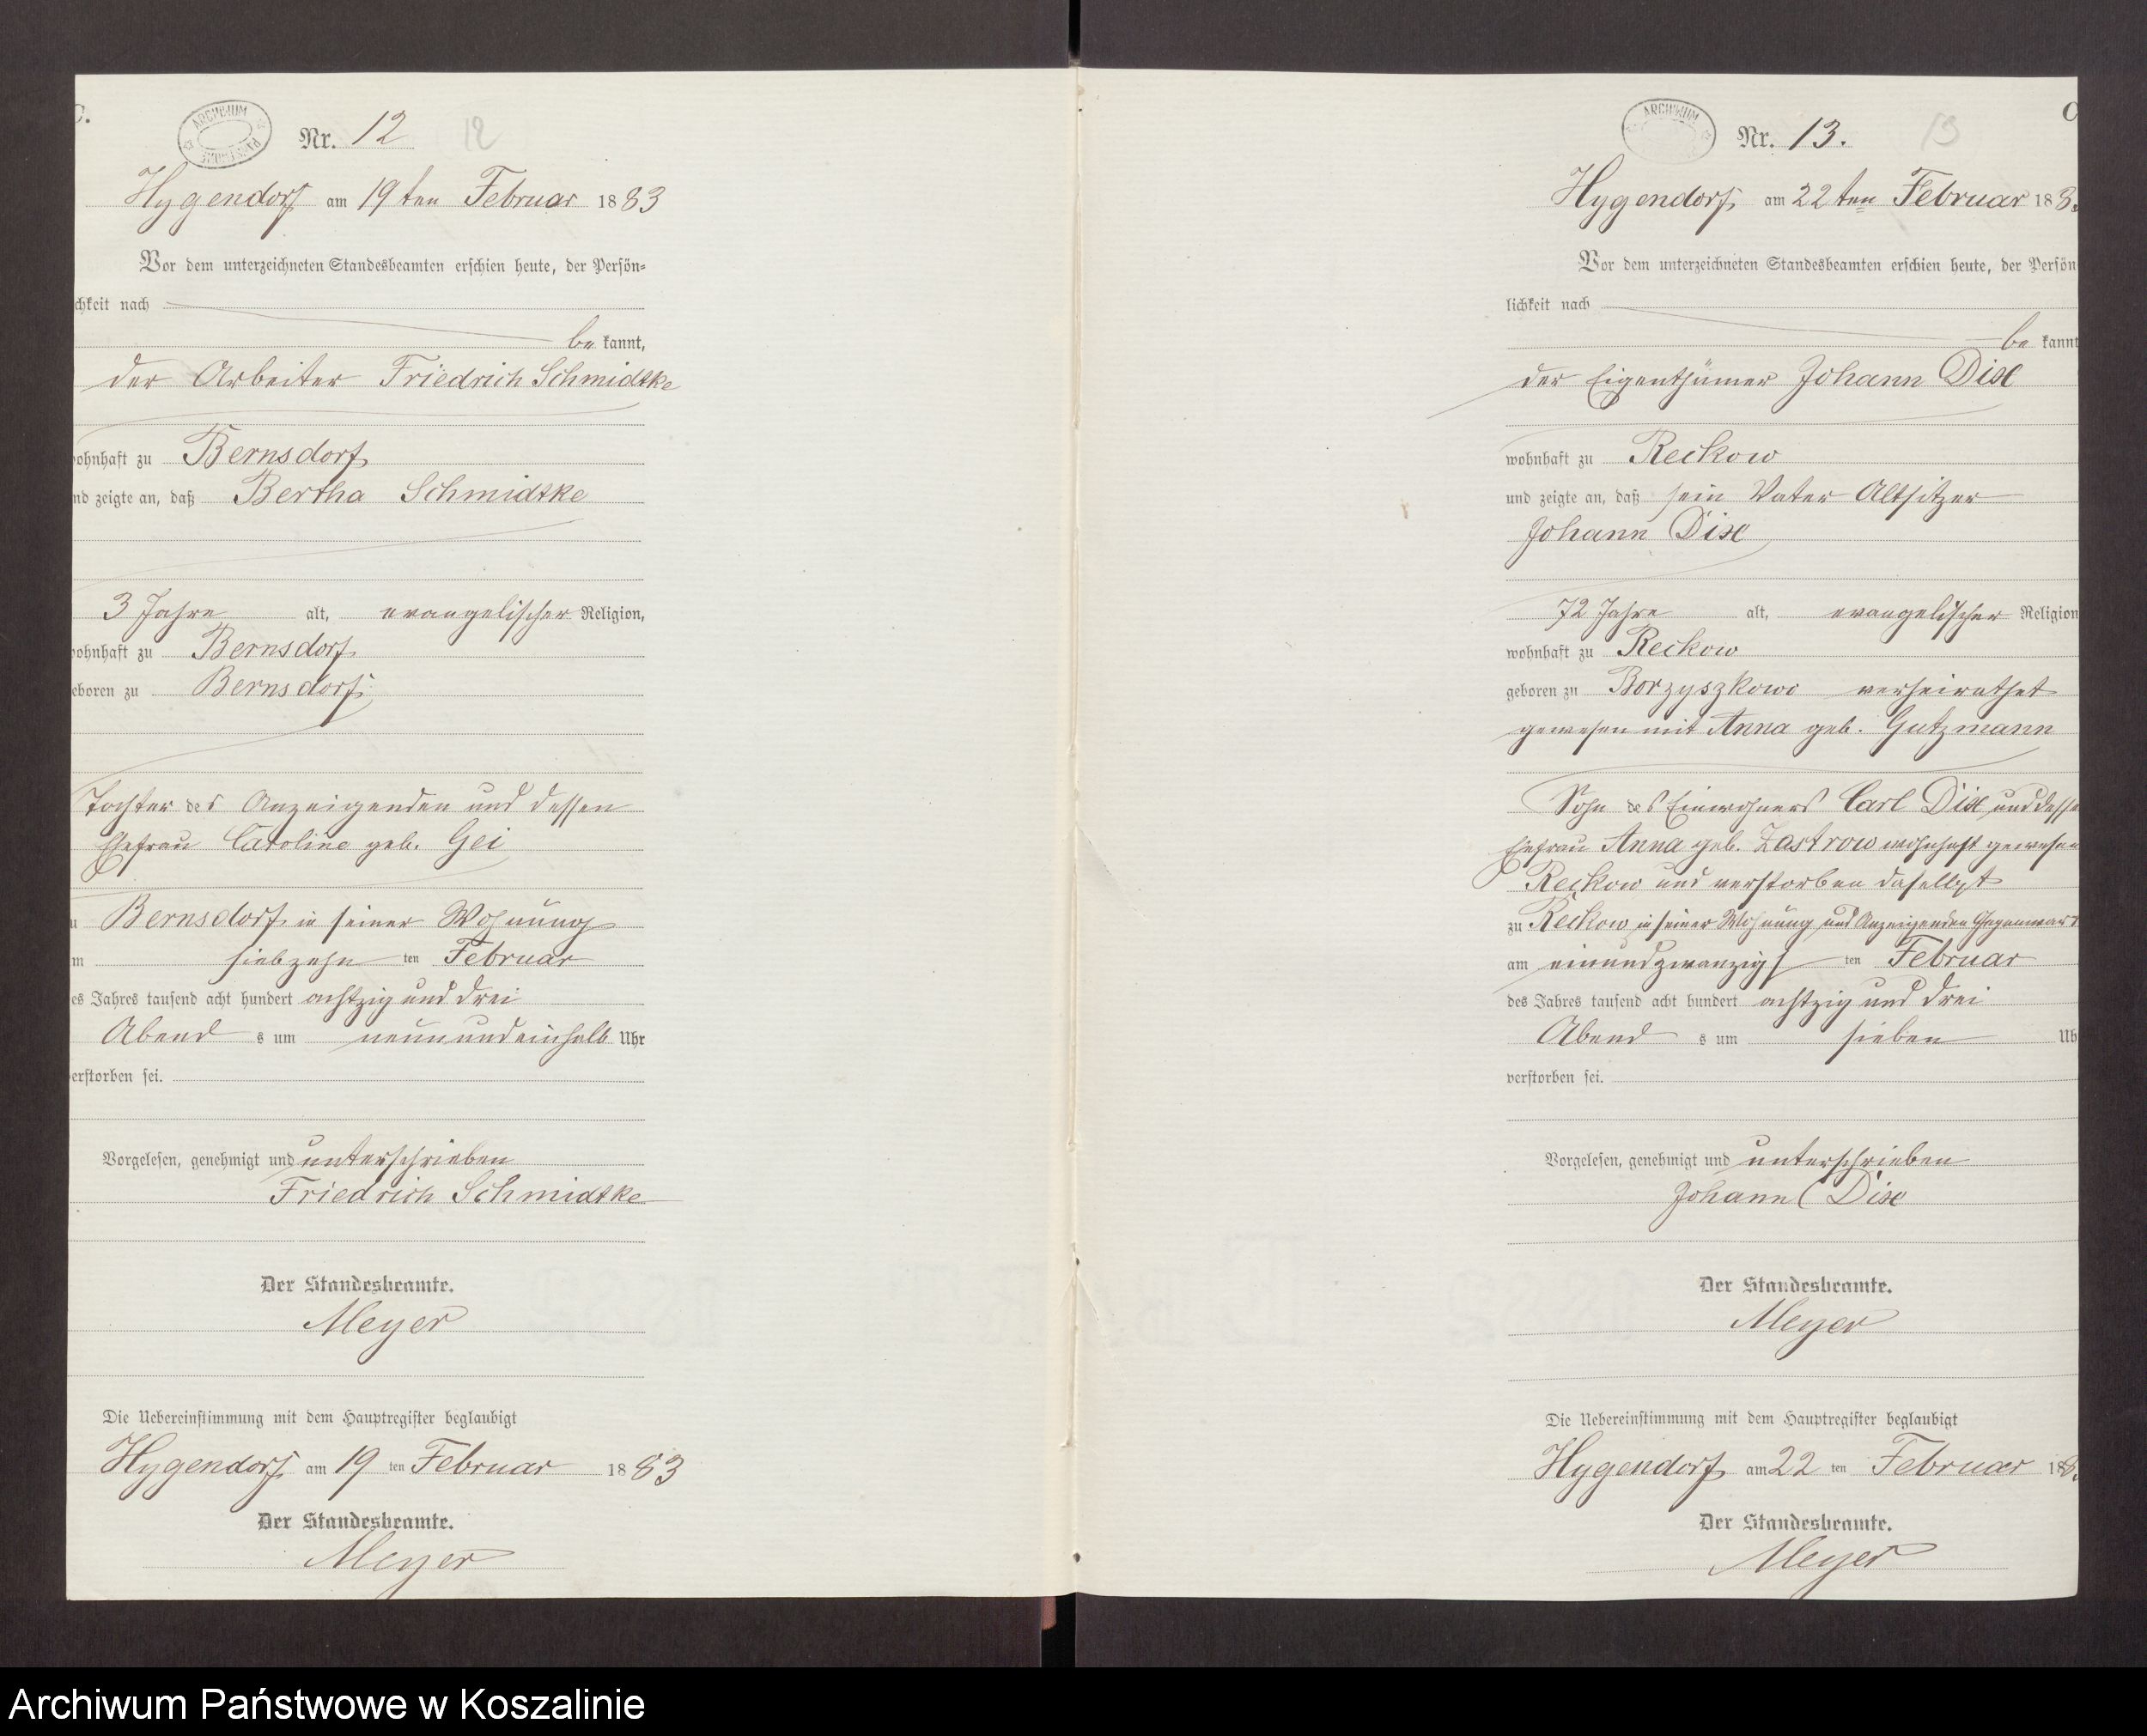 C.
ARCHIWUM PAŃSTWOWE
Nr. 12 12
Hygendorf am 19ten Februar 1883
Vor dem unterzeichneten Standesbeamten erschien heute, der Persön-
chkeit nach
be kannt,
der Arbeiter Friedrich Schmidtke
ohnhaft zu Bernsdorf
nd zeigte an, daß Bertha Schmidtke
3 Jahre alt, evangelischer Religion,
ohnhaft zu Bernsdorf
eboren zu Bernsdorf
Tochter des Anzeigenden und dessen
Ehefrau Caroline geb. Gei
u Bernsdorf in seiner Wohnung
m siebzehn ten Februar
es Jahres tausend acht hundert achtzig und drei
Abend s um neunundeinhalb Uhr
erstorben sei.
Vorgelesen, genehmigt und unterschrieben
Friedrich Schmidtke
Der Standesbeamte.
Meyer
Die Uebereinstimmung mit dem Hauptregister beglaubigt
Hygendorf am 19 ten Februar 1883
Der Standesbeamte.
Meyer
C
ARCHIWUM
Nr. 13. 13
Hygendorf am 22ten Februar 188
Vor dem unterzeichneten Standesbeamten erschien heute, der Persön
lichkeit nach
be kannt
der Eigenthümer Johann Dix
wohnhaft zu Reckow
und zeigte an, daß sein Vater Altsitzer
Johann Dix
72 Jahre alt, evangelischer Religion
wohnhaft zu Reckow
geboren zu Borzyszkowo verheirathet
gewesen mit Anna geb. Gutzmann
Sohn des Einwohners Carl Dix und desse
Ehefrau Anna geb. Zastrow wohnhaft gewesen
Reckow und verstorben daselbst
zu Reckow in seiner Wohnung und Anzeigenden Gegenwart
am einundzwanzigs ten Februar
des Jahres tausend acht hundert achtzig und drei
Abend s um sieben Uh
verstorben sei.
Vorgelesen, genehmigt und unterschrieben
Johann Dix
Der Standesbeamte.
Meyer
Die Uebereinstimmung mit dem Hauptregister beglaubigt
Hygendorf am 22 ten Februar 188
Der Standesbeamte.
Meyer
Archiwum Państwowe w Koszalinie